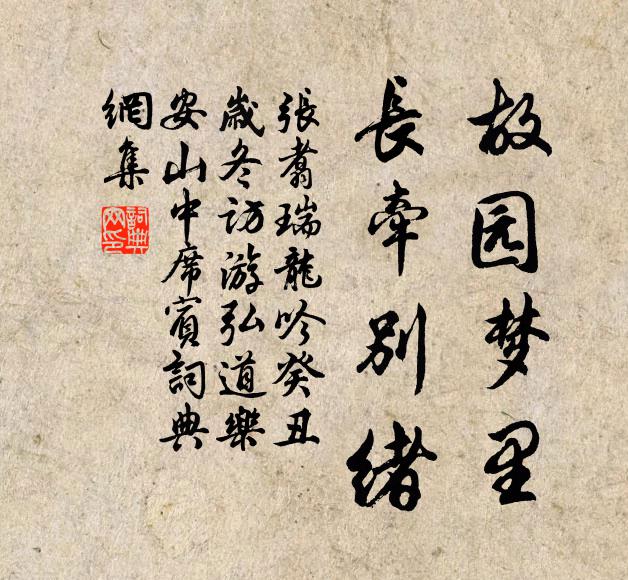 故园梦里
長牽别緒
張翥瑞龍吟癸丑
歲冬访游弘道樂
安山中席賓詞典
網集
詞典
网印